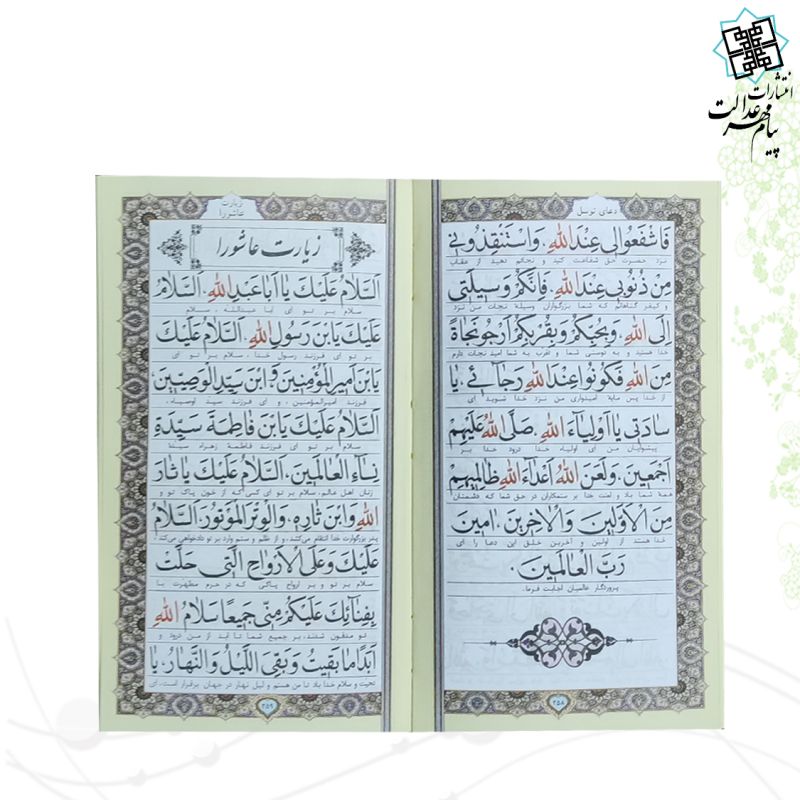 انتشارات
پیام مهر عدالت
دعای توسل
فَاشْفَعُوا لِی عِنْدَ اللهِ، وَاسْتَنْقِذُونِی
نزد حضرت حق شفاعت کنید و نجاتم دهید از عقاب
مِنْ ذُنُوبِی عِنْدَ اللهِ، فَاِنَّکُمْ وَسِیلَتِی
و کیفر گناهانم که شما بزرگواران وسیله نجات من نزد
اِلَی اللهِ، وَبِحُبِّکُمْ وَبِقُرْبِکُمْ اَرْجُو نَجَاةً
خدا هستید و به دوستی شما و تقرب به شما امید نجات دارم
مِنَ اللهِ فَکُونُوا عِنْدَ اللهِ رَجَائِی، یا
از خدا پس مایه امیدواری من نزد خدا شوید ای
سادَتِی یا اَوْلِیاءَ اللهِ، صَلَّی اللهُ عَلَیْهِمْ
پیشوایان من ای اولیاء خدا درود خدا بر
اَجْمَعِینَ، وَلَعَنَ اللهُ اَعْدَاءَ اللهِ ظَالِمِیهِمْ
همه شما باد و لعنت خدا بر ستمکاران در حق شما که دشمنان
مِنَ الْاَوَّلِینَ وَالْاخِرِینَ، امِینَ
خدا هستند از اولین و آخرین خلق این دعا را ای
رَبَّ الْعَالَمِینَ.
پروردگار عالمیان اجابت فرما.
۲۵۸
زیارت
عاشورا
زیارت عاشورا
اَلسَّلامُ عَلَیْكَ یا اَبا عَبْدِ اللهِ، اَلسَّلامُ
سلام بر تو ای ابا عبدالله، سلام
عَلَیْكَ یَابْنَ رَسُولِ اللهِ، اَلسَّلامُ عَلَیْكَ
بر تو ای فرزند رسول خدا، سلام بر تو ای
یَابْنَ اَمِیرِ الْمُؤْمِنِینَ وَابْنَ سَیِّدِ الْوَصِیِّینَ،
فرزند امیرالمؤمنین، و ای فرزند سید اوصیاء،
اَلسَّلامُ عَلَیْكَ یَابْنَ فَاطِمَةَ سَیِّدَةِ
سلام بر تو ای فرزند فاطمهٔ زهراء سیدهٔ
نِساءِ الْعَالَمِینَ، اَلسَّلامُ عَلَیْكَ یا ثَارَ
زنان اهل عالم، سلام بر تو ای کسی که از خون پاک تو و
اللهِ وَابْنَ ثَارِهِ، وَالْوِتْرَ الْمَوْتُورَ، اَلسَّلامُ
پدر بزرگوارت خدا انتقام می‌کشد، و از ظلم و ستم وارد بر تو دادخواهی می‌کند،
عَلَیْكَ وَعَلَی الْاَرْوَاحِ الَّتِی حَلَّتْ
سلام بر تو و بر ارواح پاکی که در حرم مطهرت با
بِفِنَائِكَ عَلَیْکُمْ مِنِّی جَمِیعًا سَلامُ اللهِ
تو مدفون شدند، بر جمیع شما تا ابد از من درود و
اَبَدًا مَا بَقِیتُ وَبَقِیَ اللَّیْلُ وَالنَّهَارُ، یا
تحیت و سلام خدا باد تا من هستم و لیل نهار در جهان برقرار است، ای
۲۵۹